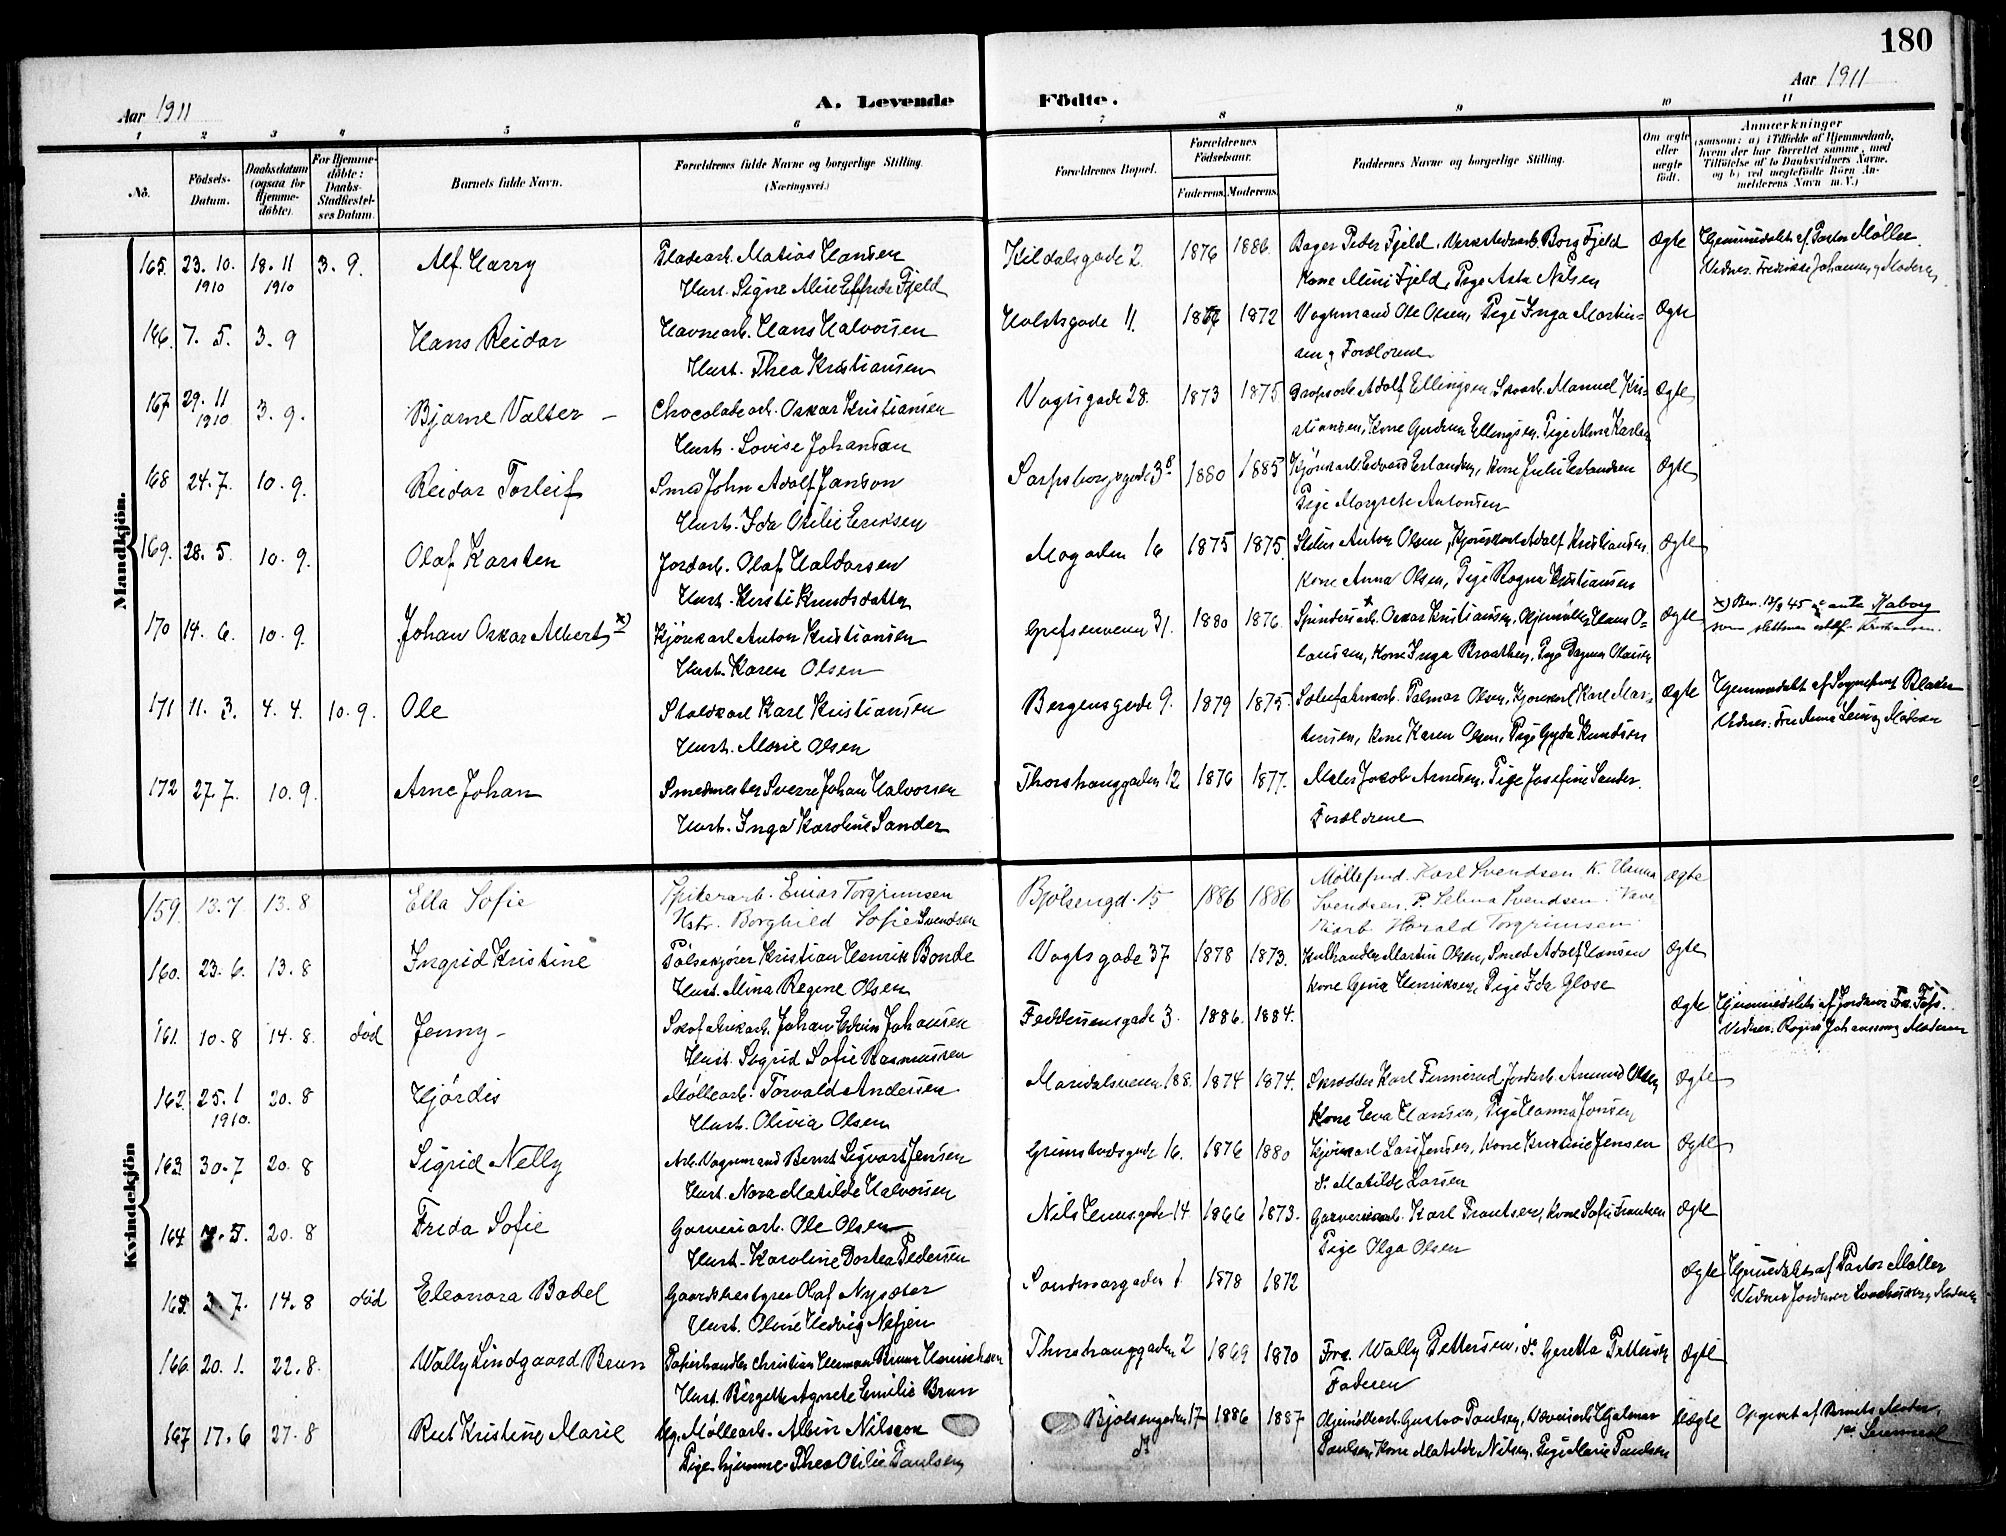 180
Aar 1911
A. Levende Födte.
Aar 1911
1 2 3 4 5 6 7 8 9 10 11
No.
Födsels-Datum.
Daabsdatum (ogsaa for Hjemmedöbte).
For Hjemmedöbte: Daabs-Stadfæstelses Datum.
Barnets fulde Navn.
Forældrenes fulde Navne og borgerlige Stilling.
(Næringsvei.)
Forældrenes Bopæl.
Forældrenes Födselsaar.
Faderens. Moderens.
Faddernes Navne og borgerlige Stilling.
Om ægte eller uægte födt.
Anmærkninger
(saasom: a) i Tilfælde af Hjemmedaab, hvem der har forrettet samme, med Tilföielse af to Daabsvidners Navne, og b) ved uægtefödte Börn Anmelderens Navn m. V.)
Mandkjön.
165. 23. 10. 18. 11 3. 9. Alf Harry Pladearb. Matias Hansen Kildalsgade 2. 1876 1886. Bager Peder Fjeld, Verkstedsarb. Borg Fjeld Ægte Hjemmedøbt af Pastor Møller.
1910 1910 Hust. Signe Alise Elfrida Fjeld Kone Mini Fjeld, Pige Asta Nilsen Vidner. Fredrikke Johansen og Moderen
166. 7. 5. 3. 9 Hans Reidar Havnearb. Hans Halvorsen Holstsgade 11. 1872 Vognmand Ole Olsen, Pige Inga Martin- Ægte
Hust. Thea Kristiansen sen og Forældrene
167 29. 11 3. 9. Bjarne Valter - Chocoladearb. Oskar Kristiansen Vogtsgade 28. 1873 1875 Adolf Ellingsen, Skoarb. Manuel Kri- Ægte
1910 Hust. Lovise Johansen stiansen, Kone Gudrun Ellingsen, Pige Alma Karlsen
168 24. 7. 10. 9. Reidar Torleif Smed John Adolf Janson Sarpsborggade 3 1880 1885 Kjørekarl Edvard Erlandsen, Kone Julie Erlandsen Ægte
Hust. Ida Otilie Eriksen Pige Margrete Antonsen
169. 28. 5. 10. 9. Olaf Karsten Jordarb. Olaf Haldorsen Mogaden 16 1875 1875. Anton Olsen, Kjørekarl Adolf Kristiansen Ægte
Hust. Kersti Knudsdatter Kone Anna Olsen, Pige Ragna Kristiansen
170 14. 6. 10. 9. Johan Oskar Albert x) Kjørekarl Anton Kristiansen Grefsenveien 31. 1880 1876. Spinderiarb. Oskar Kristiansen, Hans O- Ægte x) Bev. 45 anta Kaborg
Hust. Karen Olsen laussen, Kone Inga Braathen, Pige Dagmar Olausen som slektsnavn istedf. Kristiansen.
171 11. 3. 4. 4. 10. 9. Ole Staldkarl Karl Kristiansen Bergensgade 9. 1879 1875. Palmar Olsen, Kjørekarl Karl Mar- Ægte Hjemmedøbt af Sogneprest
Hust. Marie Olsen tinsen, Kone Karen Olsen, Pige Gyda Knudsen Vidner: Fru Anna og Moderen
172 27. 7. 10. 9. Arne Johan Smedmester Sverre Johan Halvorsen Thorshauggaden 12 1876 1877. Maler Jacob Arnesen, Pige Josefine Sander.
Hust. Inga Karoline Sander Forældrene
Kvindekjön
159. 13. 7 13. 8 Ella Sofie Spikerarb. Einar Torgrimsen Bjølsengd. 15 1886 1886 Møllefmd. Karl Svendsen K. Hanna Ægte
Hstr. Borghild Sofie Svendsen Svendsen. P. Selma Svendsen. Harald Torgrimsen
160. 23. 6. 13. 8 Ingrid Kristine Pølsekjører Kristian Henrik Bonde Vogtsgade 37 1878 1873. Kulhandler Martin Olsen, Smed Adolf Hansen Ægte
Hust. Mina Regine Olsen Kone Gina Henriksen, Pige Ida Glose
161. 10. 8 14. 8. død Jenny - Skofabrikarb. Johan Edvin Johansen Feddersensgade 3. 1886. 1884. Ægte Hjemmedøbt af Jordmor Fr.
Hust. Sigrid Sofie Rasmussen Vidner. Johansen og Moderen
162. 25. 1 20. 8 Hjørdis Møllearb. Torvald Andersen Maridalsveien 188. 1874 1874. Skrædder Karl Jordarb. Amund Olsen, Ægte
1910. Hust. Olivia Olsen Kone Eva Hansen, Pige Hanna Jonsen
163 30. 7 20. 8 Sigrid Nelly Arb. Vognmand Bernt Sigvart Jensen Grimstadsgade 16. 1876 1880 Kjørekarl Lars Jensen, Kone Kristine Jensen Ægte
Hust. Nora Matilde Halvorsen do. Matilde Larsen
164 5. 20. 8 Frida Sofie Garveriarb. Ole Olsen Nils Huusgade 14 1866 1873. Garveriarb. Karl Frantsen, Kone Sofie Frantsen Ægte
Hust. Karoline Dortea Pedersen Pige Olga Olsen
165. 2. 7. 14. 8 død Eleonora Bodel Gaardsbestyrer Olaf Nysæter Sandakergaden 1 1878 1872 Ægte Hjemmedøbt af Pastor Møller
Hust. Oline Hedvig Vidner Jordmor og Moderen
166. 20. 1. 22. 8. Wally Lindgaard Brun Papirhandler Christian Herman Brun Thorshauggaden 2 1869 1870 Frø. Wally Pettersen, do. Geretta Pettersen Ægte
Hust. Birgitte Agnete Emilie Brun Faderen
167 17. 6 27. 8 Rut Kristine Marie Ug. Møllearb. Albin Nilsson Bjølsengaden 17 1886 1887 Gustav Paulsen, Væveriarb. Hjalmar Uægte Opgivet af Barnets Moder
Pige hjemme Thea Otilie Paulsen do Paulsen, Kone Matilde Nilsen, Pige Marie Paulsen